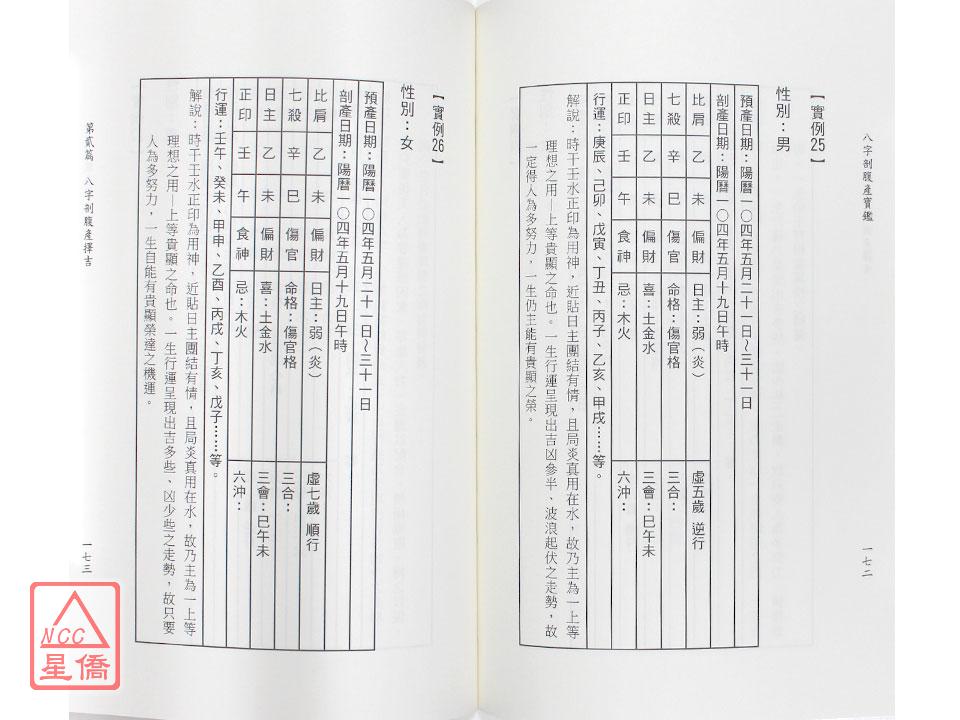 八字剖腹產寶鑑
一七二
【實例25】
性別：男
預產日期：陽曆一○四年五月二十一日～三十一日
剖產日期：陽曆一○四年五月十九日午時
比肩 乙 未 偏財 日主：弱（炎） 虛五歲 逆行
七殺 辛 巳 傷官 命格：傷官格 三合：
日主 乙 未 偏財 喜：土金水 三會：巳午未
正印 壬 午 食神 忌：木火 六沖：
行運：庚辰、己卯、戊寅、丁丑、丙子、乙亥、甲戌……等。
解說：時干壬水正印為用神，近貼日主團結有情，且局炎真用在水，故乃主為一上等
理想之用─上等貴顯之命也。一生行運呈現出吉凶參半、波浪起伏之走勢，故
一定得人為多努力，一生仍主能有貴顯之榮。
【實例26】
性別：女
預產日期：陽曆一○四年五月二十一日～三十一日
剖產日期：陽曆一○四年五月十九日午時
比肩 乙 未 偏財 日主：弱（炎） 虛七歲 順行
七殺 辛 巳 傷官 命格：傷官格 三合：
日主 乙 未 偏財 喜：土金水 三會：巳午未
正印 壬 午 食神 忌：木火 六沖：
行運：壬午、癸未、甲申、乙酉、丙戌、丁亥、戊子……等。
解說：時干壬水正印為用神，近貼日主團結有情，且局炎真用在水，故乃主為一上等
理想之用─上等貴顯之命也。一生行運呈現出吉多些、凶少些之走勢，故只要
人為多努力，一生自能有貴顯榮達之機運。
第貳篇 八字剖腹產擇吉
一七三
NCC
星僑